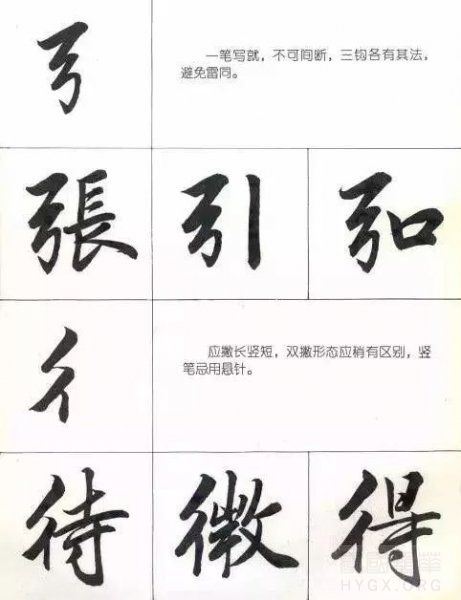 弓
一笔写就，不可间断，三钩各有其法，
避免雷同。
張 引 弘
彳
应撇长竖短，双撇形态应稍有区别，竖
笔忌用悬针。
待 徵 得
HYGX.ORG